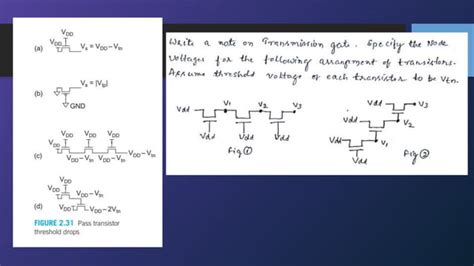 (a) VDD
VDD Vs = VDD – Vtn
(b) Vs = |Vtp|
GND
VDD VDD VDD
(c) VDD VDD – Vtn VDD – Vtn VDD – Vtn
VDD
VDD VDD – Vtn
(d) VDD VDD – 2Vtn
FIGURE 2.31 Pass transistor
threshold drops
Write a note on Transmission gate. Specify the Node
voltages for the following arrangment of transistors.
Assume threshold voltage of each transistor to be Vtn.
Vdd V1 V2 V3
Vdd Vdd Vdd
Fig ①
Vdd V3
Vdd V2
Vdd V1
Vdd
Fig ②